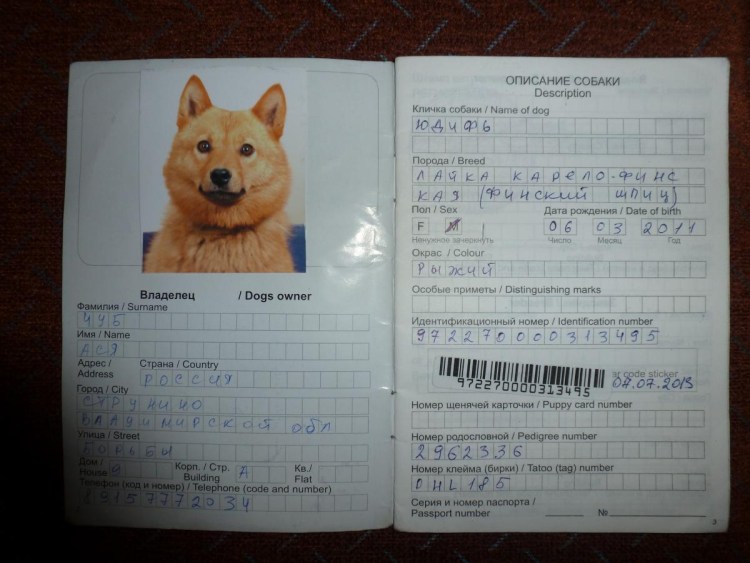 Владелец / Dogs owner
Фамилия / Surname
ЧУБ
Имя / Name
АСЯ
Адрес / Address
Страна / Country
РОССИЯ
Город / City
СТРУНИНО
ВЛАДИМИРСКОЙ ОБЛ
Улица / Street
БОРЬБЫ
Дом / House 9 Корп. / Стр. Building А Кв./ Flat
Телефон (код и номер) / Telephone (code and number)
89157772034
ОПИСАНИЕ СОБАКИ
Description
Кличка собаки / Name of dog
ЮДИФЬ
Порода / Breed
ЛАЙКА КАРЕЛО-ФИНС
КАЯ (ФИНСКИЙ ШПИЦ)
Пол / Sex
Дата рождения / Date of birth
F M 06 03 2011
Ненужное зачеркнуть Число Месяц Год
Окрас / Colour
РЫЖИЙ
Особые приметы / Distinguishing marks
Идентификационный номер / Identification number
972270000313495
972270000313495
ar code sticker
04.07.2013
Номер щенячей карточки / Puppy card number
Номер родословной / Pedigree number
2962336
Номер клейма (бирки) / Tatoo (tag) number
OHL 185
Серия и номер паспорта /
Passport number № 
3